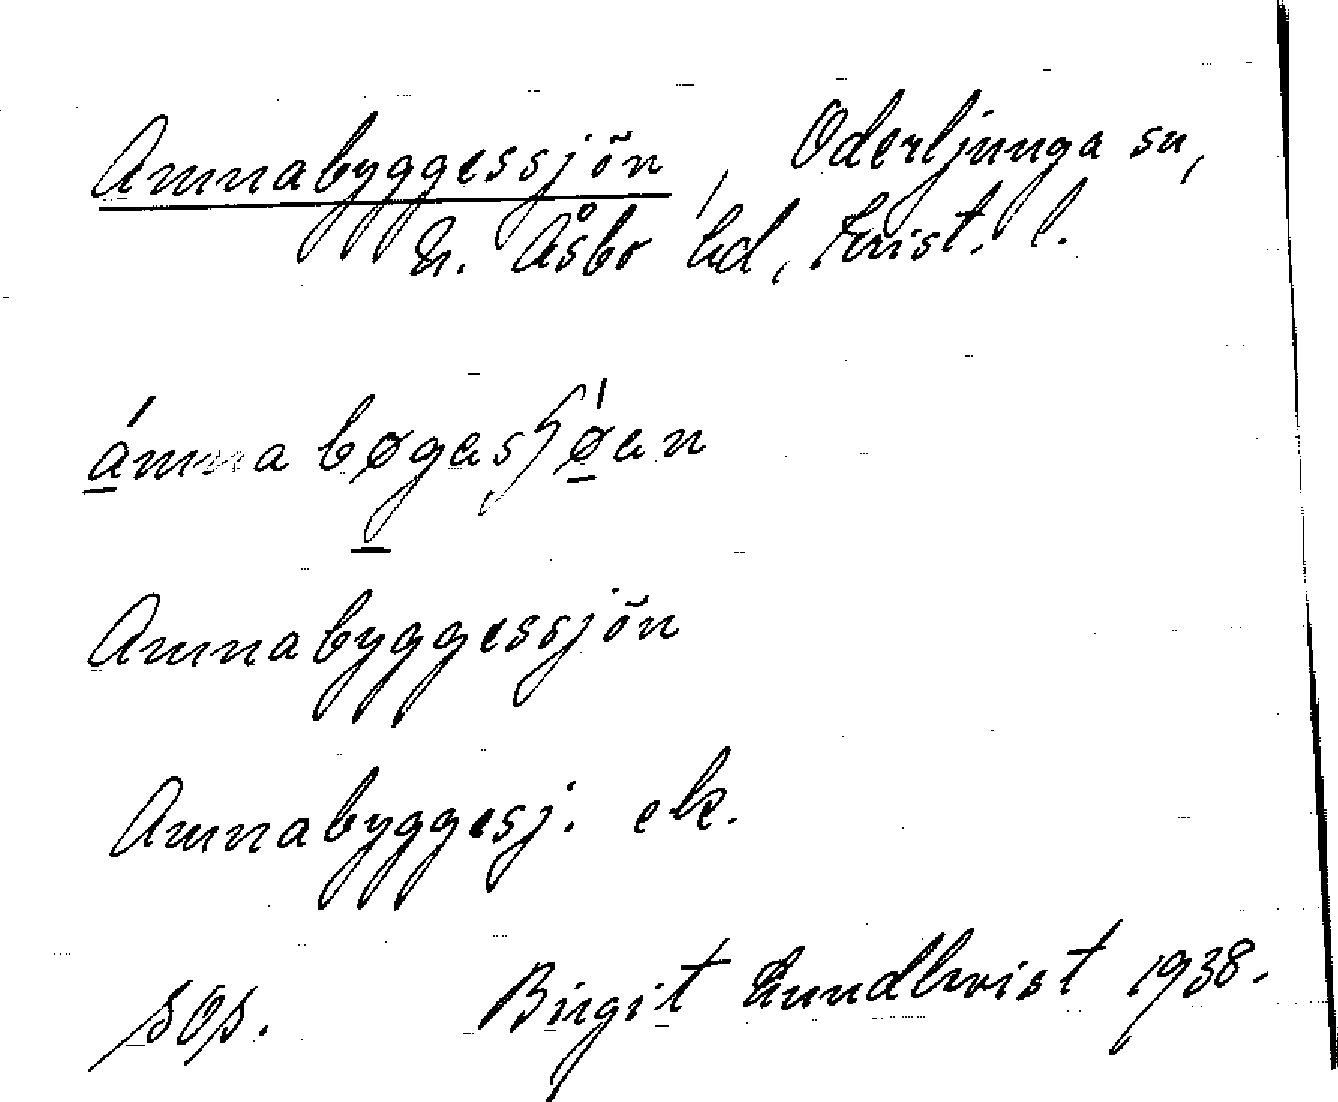 Amnabyggessjön, Oderljunga sn,
N. Åsbo hd, Krist. l.
Amnabyggessjön
Amnabyggesj. ek.
sop. Birgit Lundkvist 1938.